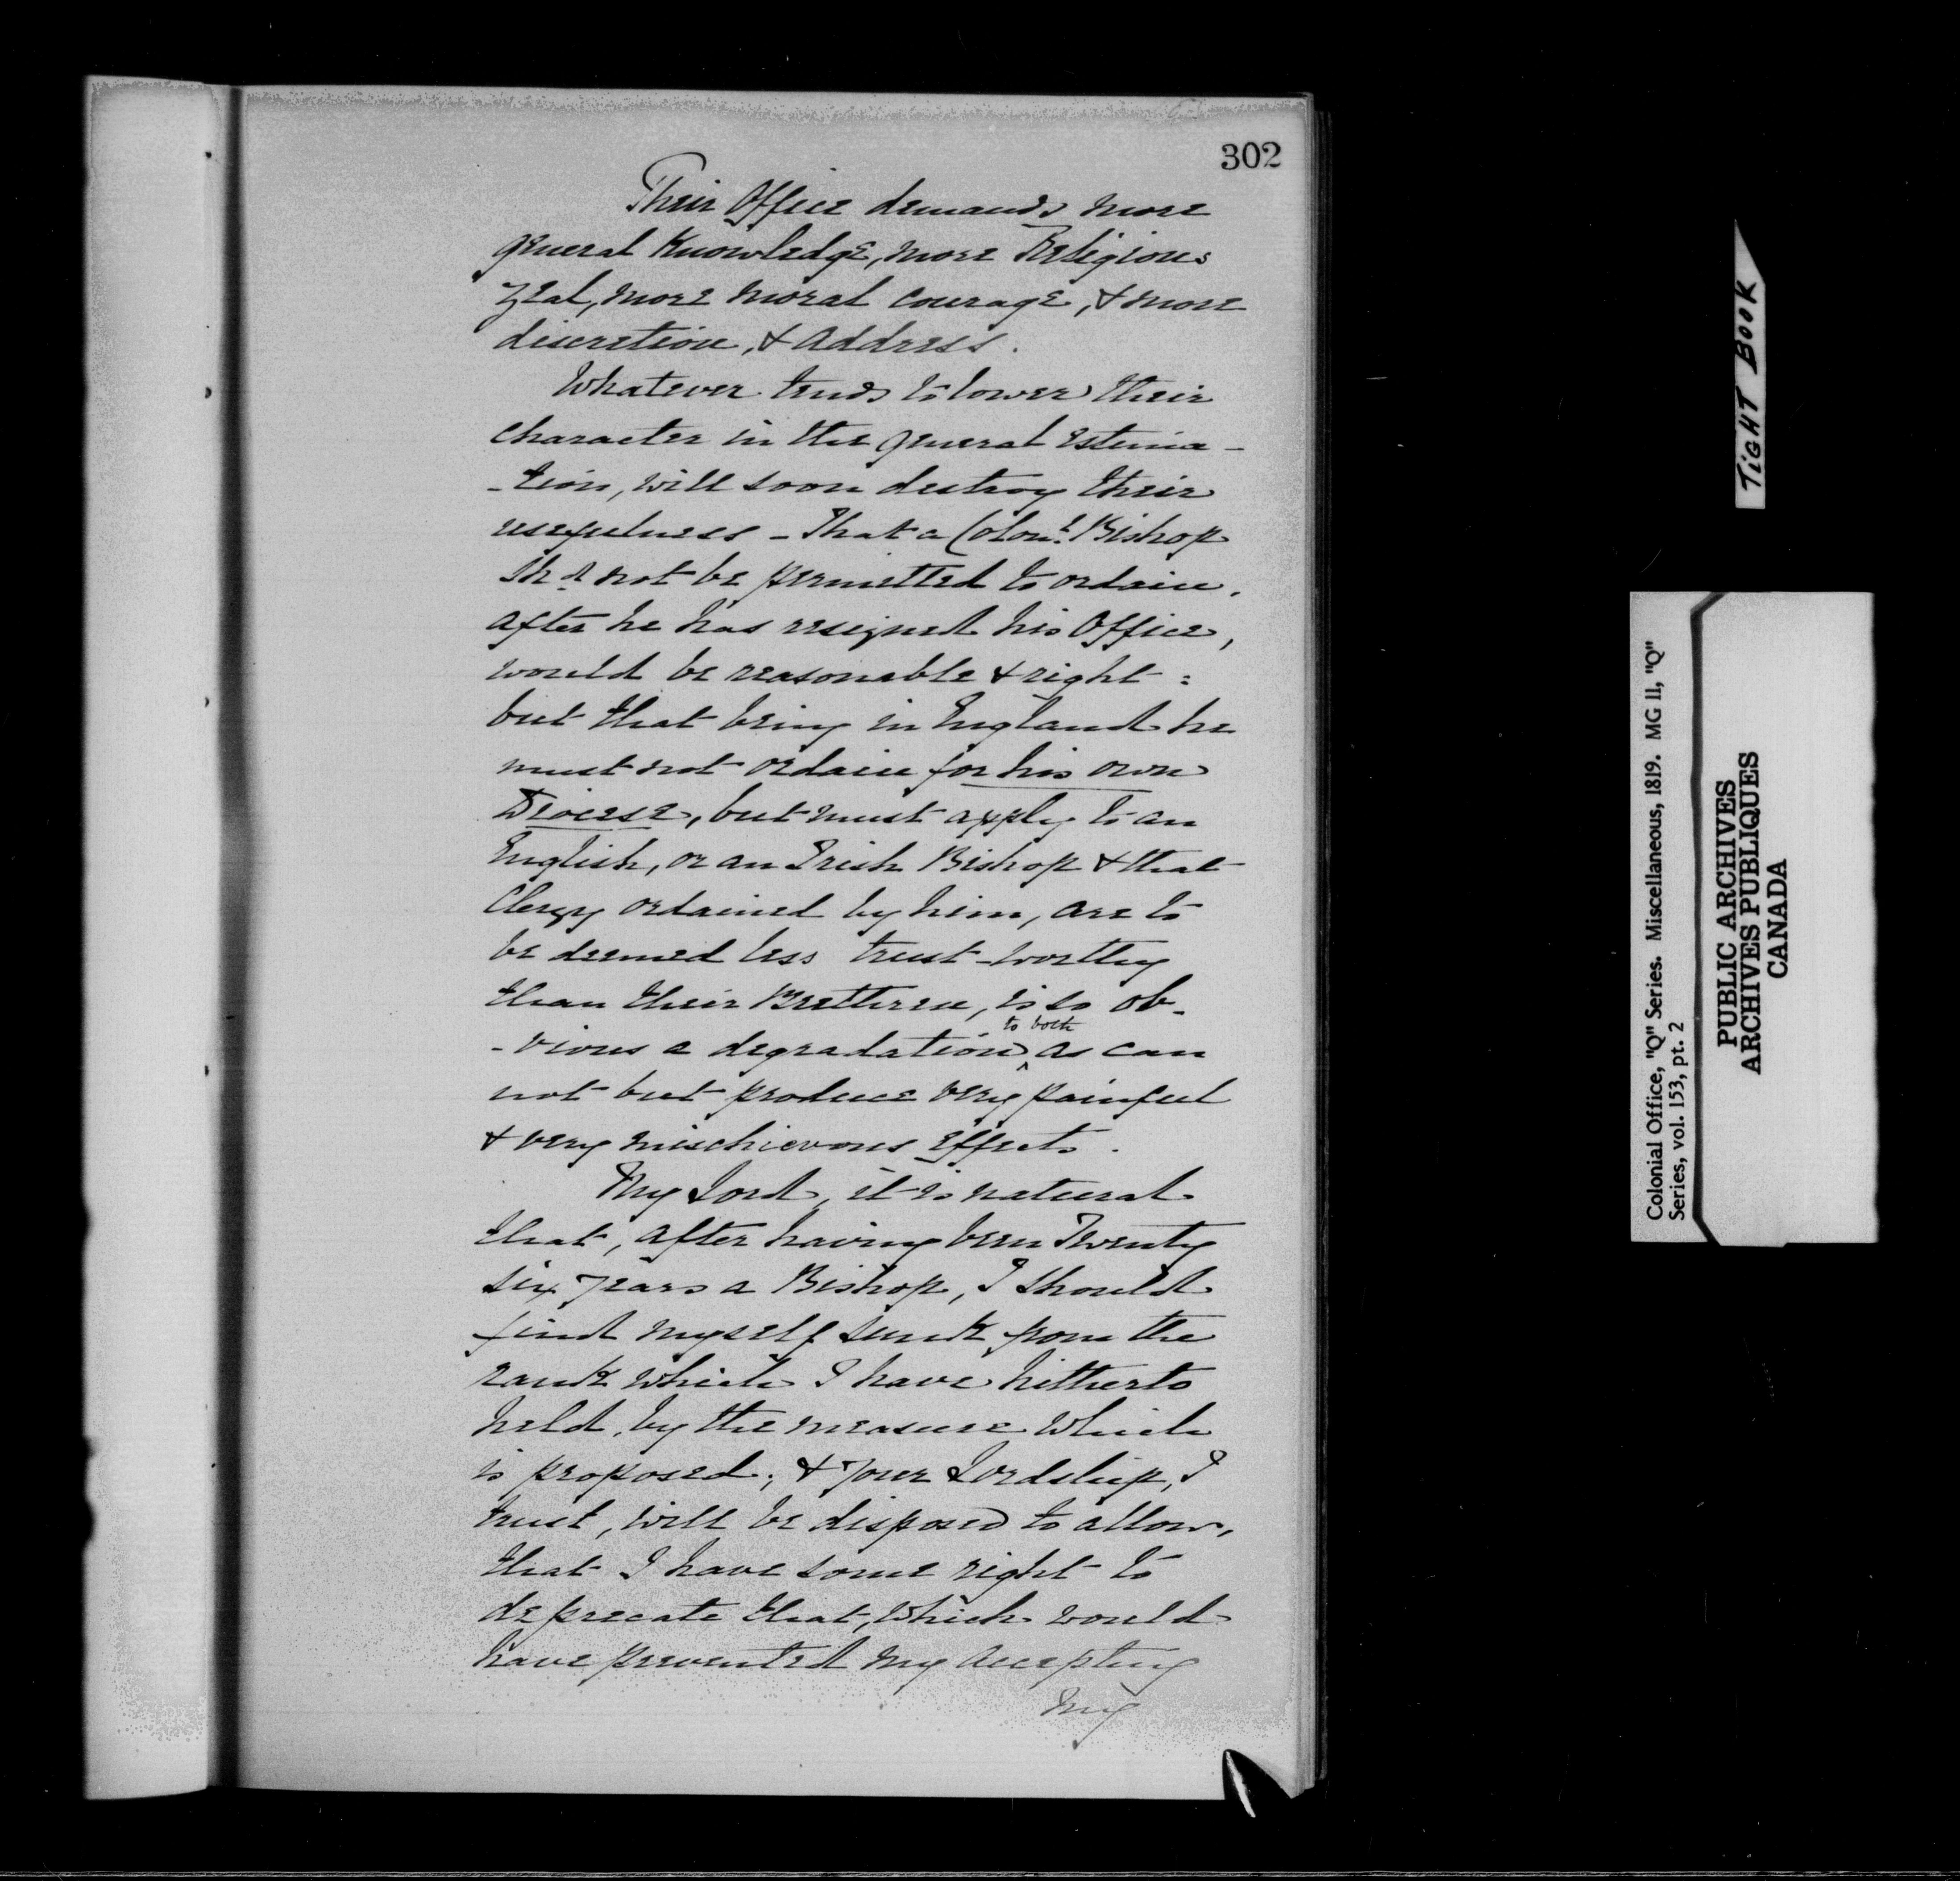 302
Their Office demands more
general Knowledge, more Religious
zeal, more moral courage, & more
discretion, & address.
Whatever tends to lower their
character in the general estima-
-tion, will soon destroy their
usefulness - That a Colonl. Bishop
shd. not be permitted to ordain,
after he has resigned his Office,
would be reasonable & right :
but that being in England he
must not ordain for his own
Diocese, but must apply to an
English, or an Irish Bishop & that
Clergy ordained by him, are to
be deemed less trust-worthy
than their Brethren, is so ob-
-vious a degradation ^ to both as can
not but produce very painful
& very mischievous effects.
My Lord, it is natural
that, after having been Twenty
six years a Bishop, I should
find myself sunk from the
rank which I have hitherto
held, by the measure which
is proposed; & your Lordship, I
trust, will be disposed to allow,
that I have some right to
deprecate that, which would
have prevented my accepting
my
TIGHT BOOK
Colonial Office, "Q" Series. Miscellaneous, 1819. MG 11, "Q"
Series, vol. 153, pt. 2
PUBLIC ARCHIVES
ARCHIVES PUBLIQUES
CANADA